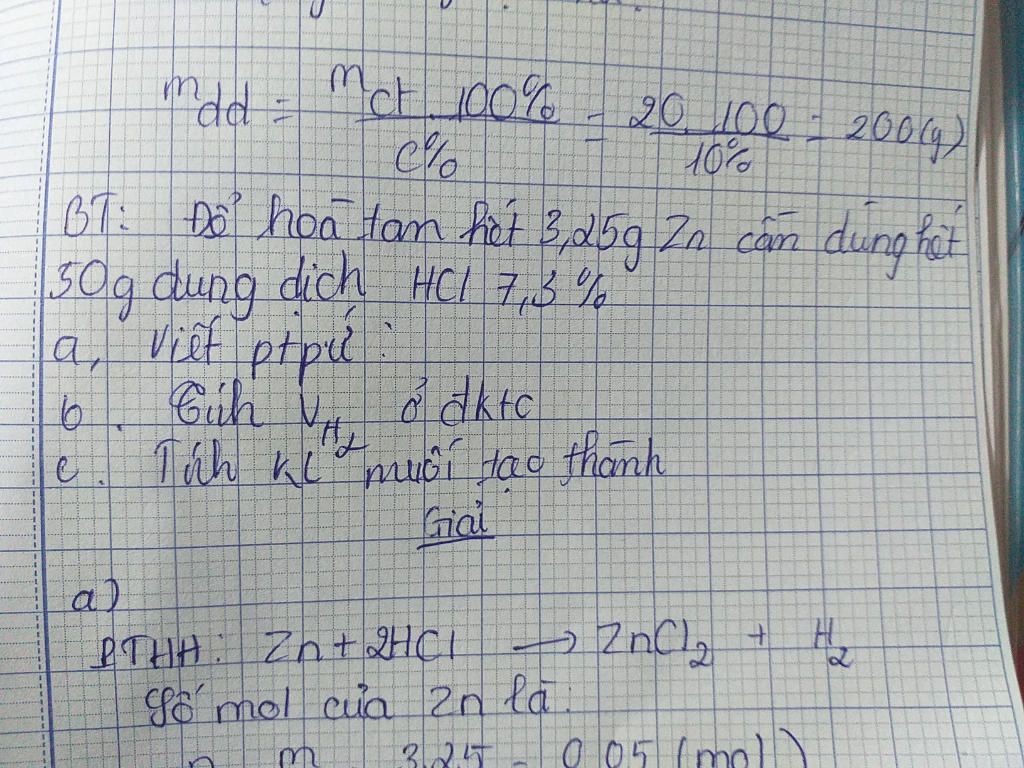 mdd = mct . 100% / C% = 20 . 100 / 10% = 200(g)
BT: Để hoà tan hết 3,25g Zn cần dùng hết
50g dung dịch HCl 7,3%
a, Viết ptpứ:
b. Tính VH2 ở đktc
c. Tính KL muối tạo thành
Giải
a)
PTHH: Zn + 2HCl → ZnCl2 + H2
Số mol của Zn là:
n m 3,25 = 0,05 (mol)